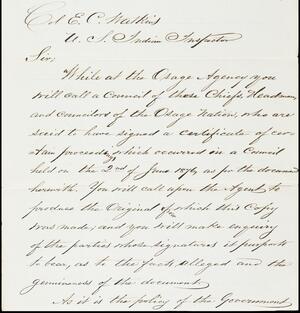 Col E. C. Watkins
U. S. Indian Inspector
Sir;
While at the Osage Agency you
will call a Council of these Chiefs, Headmen,
and councilors of the Osage Nation, who are
said to have signed a certificate of cer-
tain proceedings which occurred in a Council
held on the 2nd of June 1876, as per the document
herewith. You will call upon the Agent to
produce the Original of which this Copy
was made; and you will make enquiry
of the parties whose signatures it purports
to bear, as to the facts alleged and the
genuineness of the document.
As it is the policy of the Government